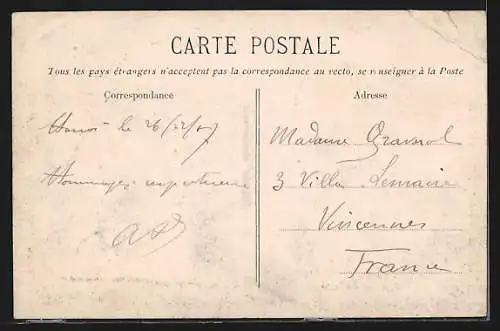 CARTE POSTALE
Tous les pays étrangers n'acceptent pas la correspondance au recto, se renseigner à la Poste
Correspondance
Adresse
Hanoi le 26/12/07
Hommages respectueux
Madame Graverol
3 Villa Lemaire
Vincennes
France